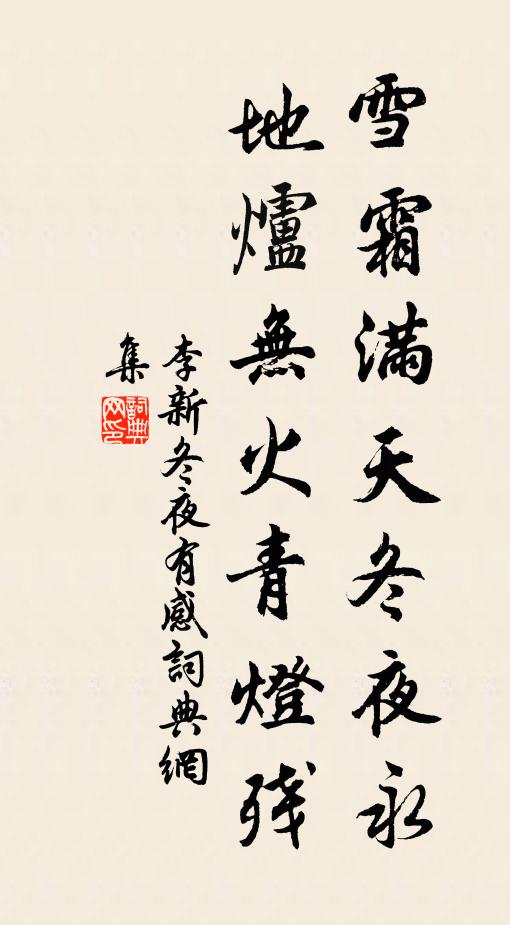 雪霜滿天冬夜永
地爐無火青燈残
李新冬夜有感詞典網
集
詞典网印